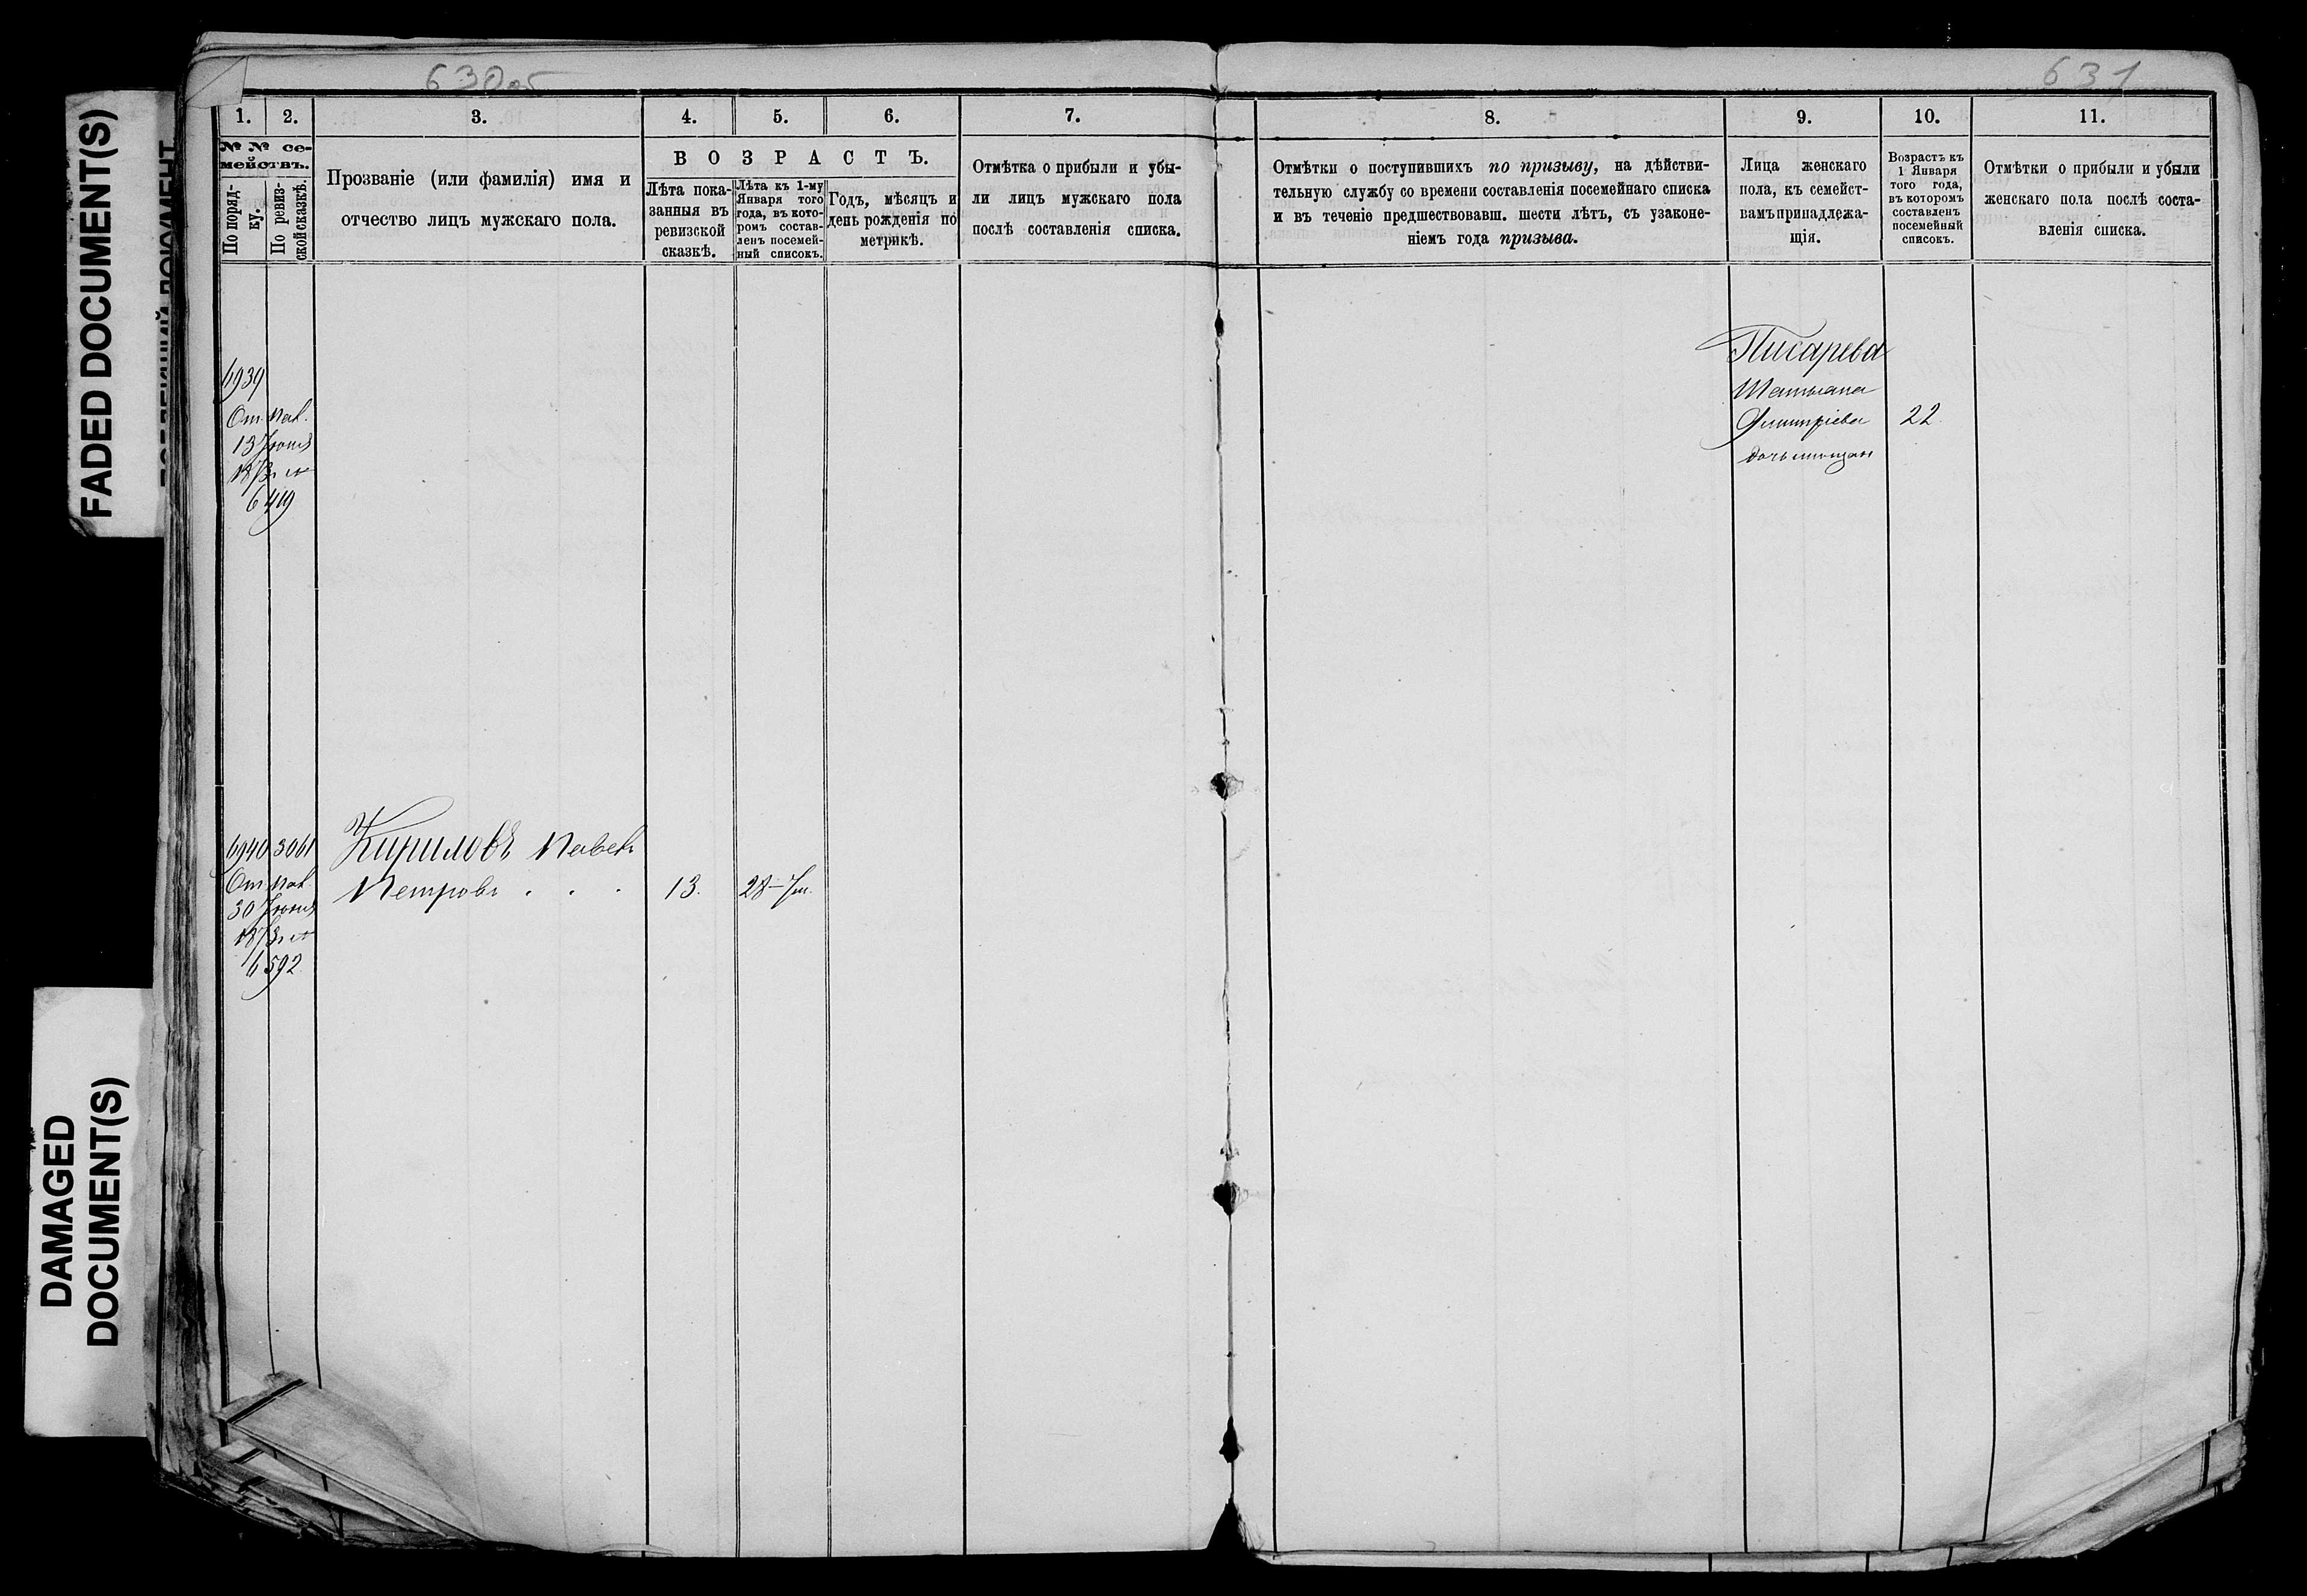 FADED DOCUMENT(S)
DAMAGED
DOCUMENT(S)
630об
631
1. 2. 3. 4. 5. 6. 7.
№ № се-
мействъ.
По поряд-
ку.
По ревиз-
ской сказкѣ.
Прозваніе (или фамилія) имя и
отчество лицъ мужскаго пола.
ВОЗРАСТЪ.
Лѣта пока-
занныя въ
ревизской
сказкѣ.
Лѣта къ 1-му
Января того
года, въ кото-
ромъ состав-
ленъ посемей-
ный списокъ.
Годъ, мѣсяцъ и
день рожденія по
метрикѣ.
Отмѣтка о прибыли и убы-
ли лицъ мужскаго пола
послѣ составленія списка.
6939
От. Пал.
13 Іюня
1873 г. №
6419
6940 3061 Кириловъ Павелъ
От. Пал. Петровъ . . . 13. 28–7 м.
30 Іюня
1873 г. №
6592
8. 9. 10. 11.
Отмѣтки о поступившихъ по призыву, на дѣйстви-
тельную службу со времени составленія посемейнаго списка
и въ теченіе предшествовавш. шести лѣтъ, съ узаконе-
ніемъ года призыва.
Лица женскаго
пола, къ семейст-
вамъ принадлежа-
щія.
Возрастъ къ
1 Января
того года,
въ которомъ
составленъ
посемейный
списокъ.
Отмѣтки о прибыли и убыли
женскаго пола послѣ соста-
вленія списка.
Писарева
Татьяна
Дмитріева 22.
дочь мѣщан